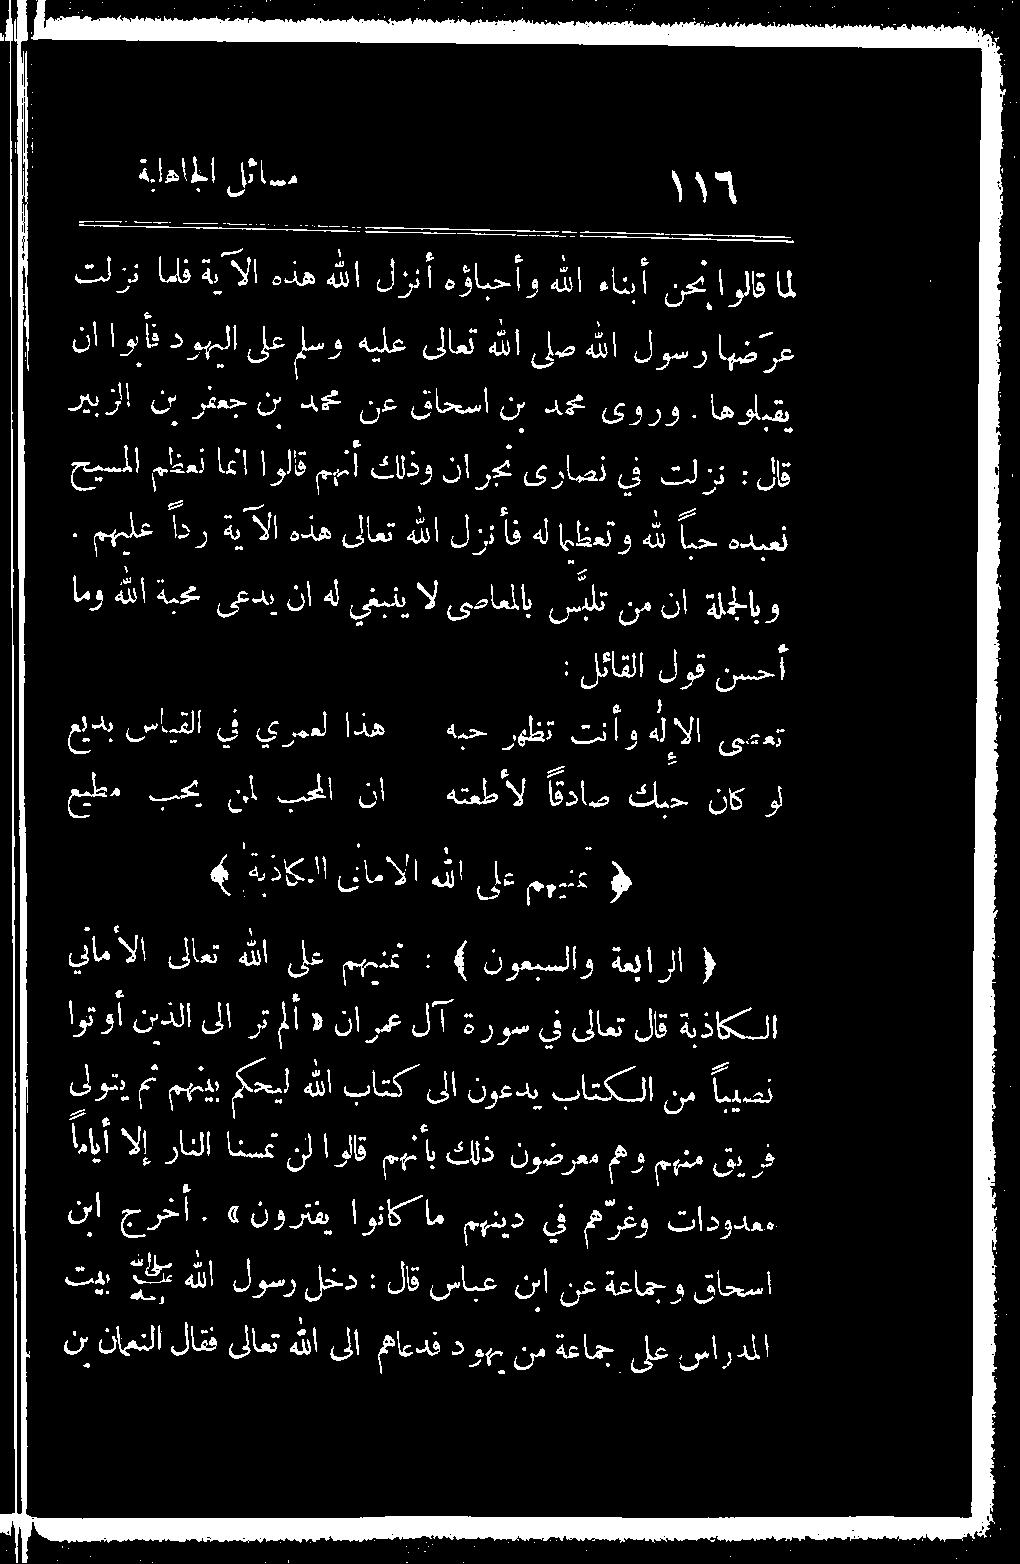 ١١٦ مسائل الجاهلية
لما قالوا نحن أبناء الله وأحباؤه أنزل الله هذه الآية فلما نزلت
عرَضها رسول الله صلى الله تعالى عليه وسلم على اليهود فأبوا ان
يقبلوها . وروى محمد بن اسحاق عن محمد بن جعفر بن الزبير
قال : نزلت في نصارى نجران وذلك أنهم قالوا انما نعظم المسيح
نعبده حباً لله وتعظيما له فأنزل الله تعالى هذه الآية رداً عليهم .
وبالجملة ان من تلبَّس بالمعاصى لا ينبغي له ان يدعى محبة الله وما
أحسن قول القائل :
تعصى الإِلٰه وأنت تظهر حبه هذا لعمري في القياس بديع
لو كان حبك صادقاً لأطعته ان المحب لمن يحب مطيع
﴿ تمنيهم على الله الامانى الكاذبة ﴾
﴿ الرابعة والسبعون ﴾ : تمنيهم على الله تعالى الأماني
الكاذبة قال تعالى في سورة آل عمران « ألم تر الى الذين أوتوا
نصيباً من الكتاب يدعون الى كتاب الله ليحكم بينهم ثم يتولى
فريق منهم وهم معرضون ذلك بأنهم قالوا لن تمسنا النار إلا أياماً
معدودات وغرّهم في دينهم ما كانوا يفترون » . أخرج ابن
اسحاق وجماعة عن ابن عباس قال : دخل رسول الله ﷺ بيت
المدراس على جماعة من يهود فدعاهم الى الله تعالى فقال النعمان بن